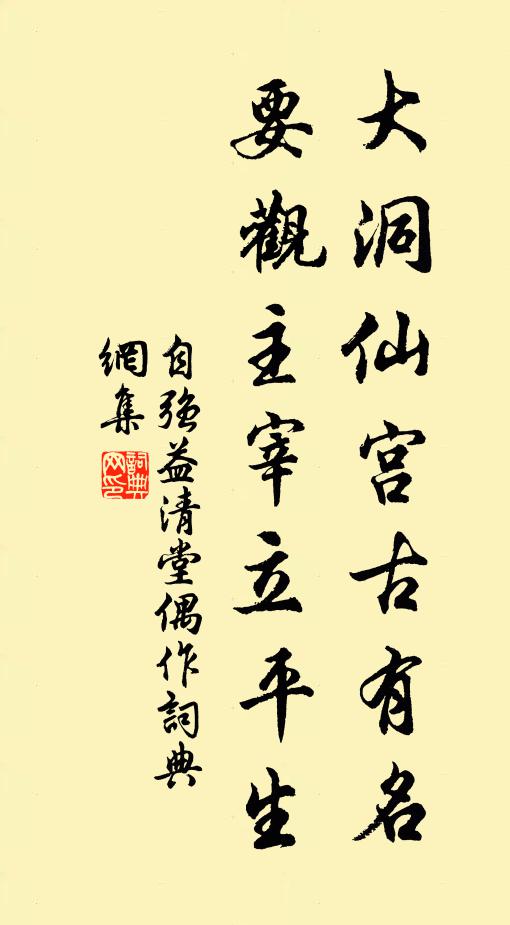 大洞仙宫古有名
要觀主宰立平生
自强益清堂偶作詞典
網集
詞典
网印